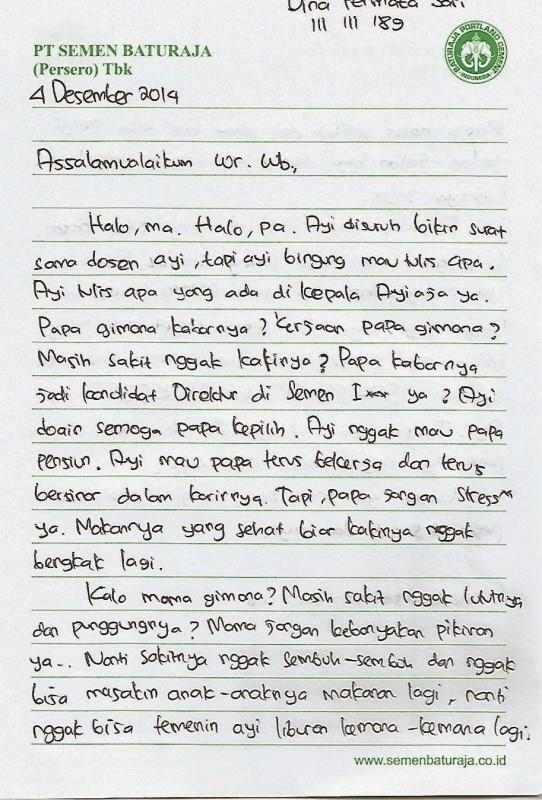 Dina Permata Sari
111 111 189
PT SEMEN BATURAJA
(Persero) Tbk
BATURAJA PORTLAND CEMENT
INDONESIA
4 Desember 2014
Assalamualaikum Wr. Wb.,
Halo, ma. Halo, pa. Ayi disuruh bikin surat
sama dosen ayi, tapi ayi bingung mau tulis apa.
Ayi tulis apa yang ada di kepala Ayi aja ya.
Papa gimana kabarnya? Kerjaan papa gimana?
Masih sakit nggak kakinya? Papa kabarnya
jadi kandidat Direktur di Semen Ixxx ya? Ayi
doain semoga papa kepilih. Ayi nggak mau papa
pensiun. Ayi mau papa terus bekerja dan terus
bersinar dalam karirnya. Tapi, papa jangan stress"
ya. Makannya yang sehat biar kakinya nggak
bengkak lagi.
Kalo mama gimana? Masih sakit nggak lututnya
dan punggungnya? Mama jangan kebanyakan pikiran
ya.. Nanti sakitnya nggak sembuh-sembuh dan nggak
bisa masakin anak-anaknya makanan lagi, nanti
nggak bisa temenin ayi liburan kemana-kemana lagi.
www.semenbaturaja.co.id